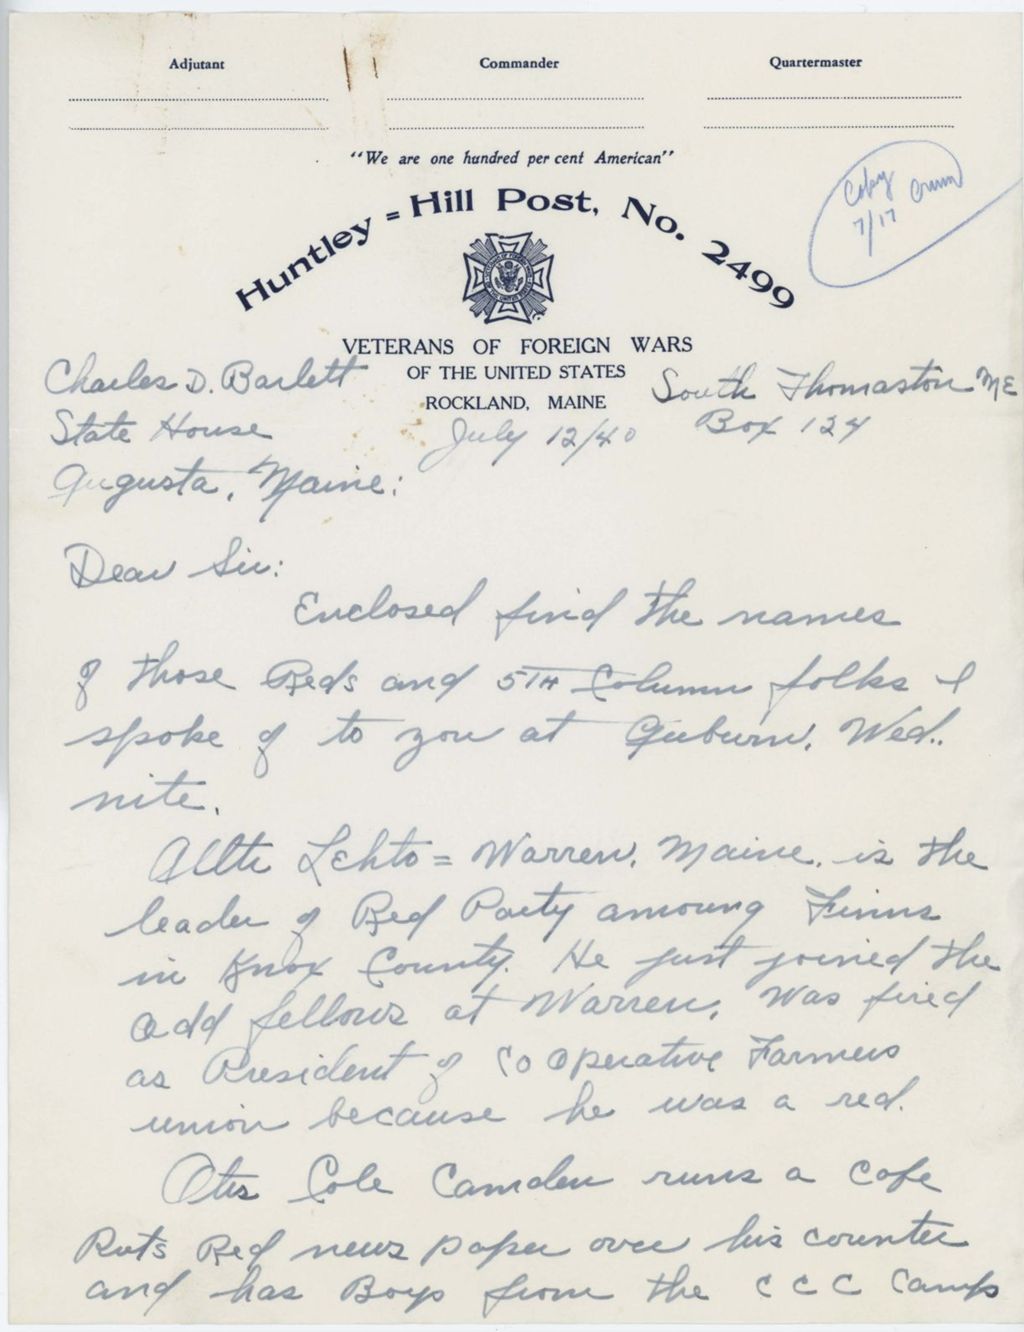 Adjutant Commander Quartermaster
"We are one hundred per cent American"
Huntley = Hill Post, No. 2499
Copy
7/17
VETERANS OF FOREIGN WARS
OF THE UNITED STATES
ROCKLAND, MAINE
Charles D. Barlett South Thomaston ME
State House July 12/40 Box 124
Augusta, Maine:
Dear Sir:
Enclosed find the names
of those Reds and 5TH Column folks I
spoke of to you at Auburn, Wed.
nite.
Lehto = Warren, Maine, is the
leader of Red Party amoung Finns
in Knox County. He just joined the
odd fellows at Warren, Was fired
as President of Co Operative Farmers
union because he was a red.
Otis Cole Camden runs a Cafe
Puts Red news paper over his counter
and has Boys from the C C C Camps